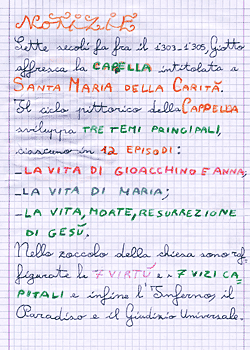 NOTIZIE
Sette secoli fa fra il 1303-1305, Giotto
affresca la CAPELLA intitolata a
SANTA MARIA DELLA CARITÀ.
Il ciclo pittorico della CAPPELLA
sviluppa TRE TEMI PRINCIPALI,
ciascuno in 12 EPISODI:
-LA VITA DI GIOACCHINO E ANNA;
-LA VITA DI MARIA;
-LA VITA, MORTE, RESURREZIONE
DI GESÙ.
Nello zoccolo della chiesa sono raf-
figurate le 7 VIRTÙ e i 7 VIZI CA-
PITALI e infine l'Inferno, il
Paradiso e il Giudizio Universale.